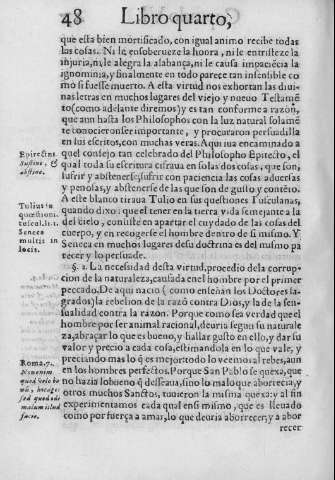 48 Libro quarto,
que esta bien mortificado, con igual animo recibe todas
las cosas. Ni le ensoberuece la honra, ni le entristeze la
injuria, ni le alegra la alabança, ni le causa impaciẽcia la
ignominia, y finalmente en todo parece tan insensible co
mo si fuesse muerto. A esta virtud nos exhortan las diui-
nas letras en muchos lugares del viejo y nueuo Testamẽ
to (como adelante diremos) y es tan conforme a razõ,
que aun hasta los Philosophos con la luz natural solamẽ
te conocieron ser importante, y procuraron persuadilla
en sus escritos, con muchas veras. Aqui iua encaminado a
Epictectus.
Sustine, &
abstine.
quel consejo tan celebrado del Philosopho Epitecto, el
qual toda su escritura cifraua en solas dos cosas, que son,
sufrir y abstenerse, sufrir con paciencia las cosas aduersas
y penosas, y abstenerse de las que son de gusto y contẽto.
Tulius in
quæstioni.
tuscul. li. 1.
Seneca
multis in
locis.
A este blanco tiraua Tulio en sus questiones Tusculanas,
quando dixo: que el tener en la tierra vida semejante a la
del cielo, consiste en apartar el cuydado de las cosas del
cuerpo, y en recogerse el hombre dentro de si mismo. Y
Seneca en muchos lugares de su doctrina es del mismo pa
recer y lo persuade.
§. 2. La necesidad desta virtud, procedio dela corrup-
cion de la naturaleza, causada en el hombre por el primer
peccado. De aqui nacio (como enseñan los Doctores sa-
grados) la rebelion de la razõ contra Dios, y la de la sen-
sualidad contra la razon. Porque como sea verdad que el
hombre por ser animal racional, deuria segun su naturale
za, abraçar lo que es bueno, y hallar gusto en ello, y dar su
valor y precio a cada cosa, estimandola en lo que vale, y
preciando mas lo q̃ es mejor todo lo veemos al rebes, aun
Roma. 7.
Non enim
quod volo bo
nũ, hoc ago:
sed quod odi
malum illud
facio.
en los hombres perfectos. Porque San Pablo se quexa, que
no hazia lo bueno q̃ desseaua, sino lo malo que aborrecia, y
otros muchos Sanctos, tuuieron la misma quexa: y al fin
experimentamos cada qual en si mismo, que es lleuado
como por fuerça a amar, lo que deuria aborrecer, y a abor
recer